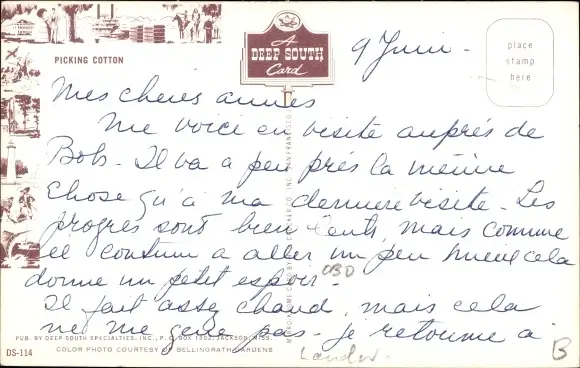 PICKING COTTON
A
DEEP SOUTH
Card
place
stamp
here
9 Juin -
Mes chères amies
Me voici en visite auprès de
Bob - Il va a peu près la même
chose qu'à ma derniere visite. Les
progres sont bien lents, mais comme
il continu a aller un peu mieux cela
donne un petit espoir.
OBO
Il fait assez chaud, mais cela
ne me gene pas. je retourne à
PUB. BY DEEP SOUTH SPECIALTIES, INC., P. O. BOX 1902, JACKSON, MISS.
DS-114
COLOR PHOTO COURTESY OF BELLINGRATH GARDENS
B